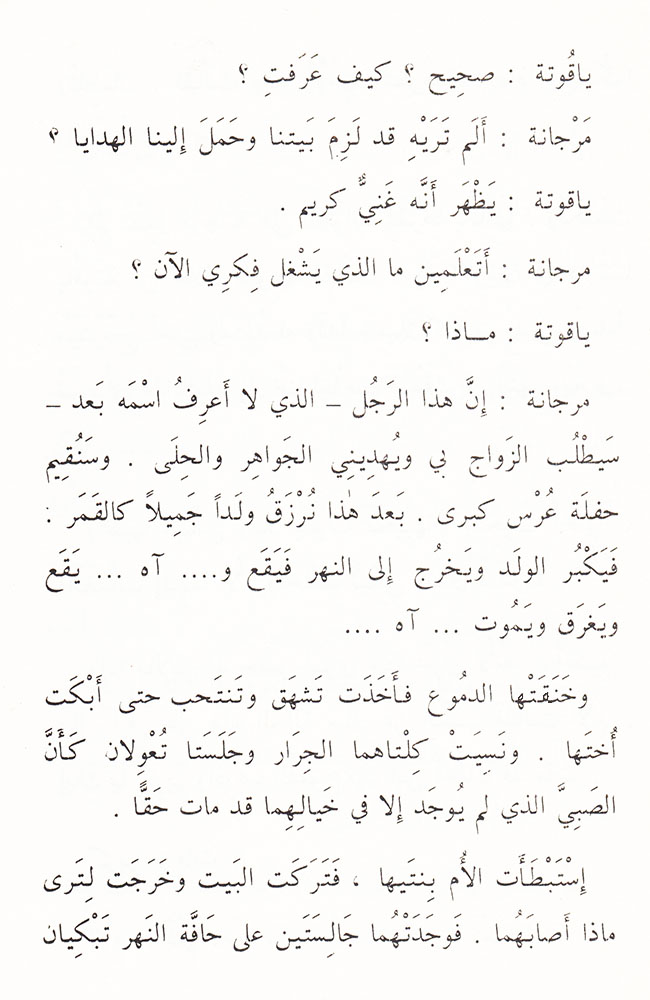 ياقُوتة : صحِيح ؟ كيف عَرَفتِ ؟
مَرْجانة : أَلَم تَرَيْهِ قد لَزِمَ بَيتنا وحَمَلَ إِلينا الهدايا ؟
ياقوتة : يَظْهَر أَنَّه غَنِيٌّ كريم .
مرجانة : أَتَعْلَمِين ما الذي يَشْغل فِكرِي الآن ؟
ياقوتة : مــاذا ؟
مرجانة : إِنَّ هذا الرَجُل – الذي لا أَعرِفُ اسْمَه بَعد –
سَيَطْلُب الزَواج بي ويُهدِينِي الجَواهِر والحِلَى . وسَنُقِيم
حفلَة عُرْس كبرى . بَعدَ هٰذا نُرْزَقُ ولَداً جَمِيلاً كالقَمَر :
فَيَكْبُر الولَد ويَخرُج إِلى النهر فَيَقَع و.... آه ... يَقَع
ويَغرَق ويَمُوت ... آه ....
وخَنَقَتْها الدمُوع فأَخَذَت تَشهَق وتَنتَحب حتى أَبْكَت
أُختَها . ونَسِيَتْ كِلْتاهما الجِرَار وجَلَسَتا تُعْوِلان كَأَنَّ
الصَبِيَّ الذي لم يُوجَد إِلا في خَيالِهِما قد مات حَقًّا .
إِسْتَبْطَأَت الأُم بِنتَيها ، فَتَرَكَت البَيت وخَرَجَت لِتَرى
ماذا أَصابَهُما . فَوجَدَتْهُما جَالِسَتَين على حَافَّة النَهر تَبْكِيان